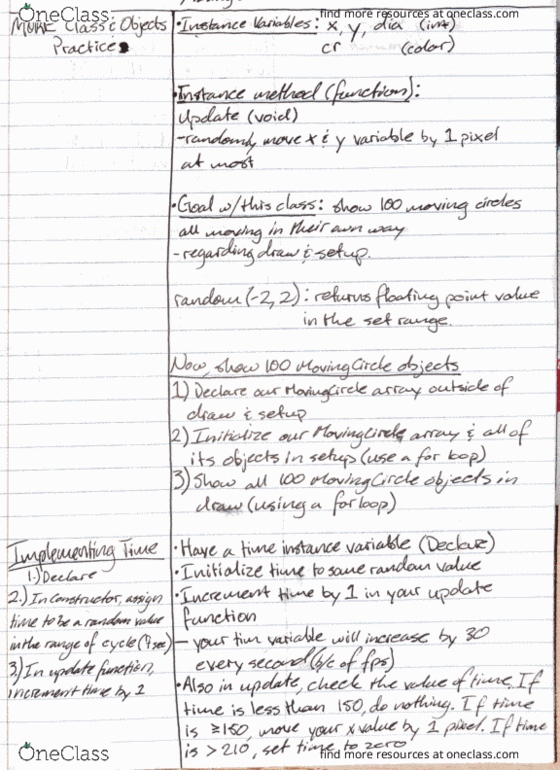 OneClass
find more resources at oneclass.com
MORE Class & Objects
Practice
• Instance Variables: x, y, dia (int)
cr (color)
• Instance method (function):
Update (void)
- randomly move x & y variable by 1 pixel
at most
• Goal w/ this class: show 100 moving circles
all moving in their own way
- regarding draw & setup.
random(-2, 2): returns floating point value
in the set range.
Now, show 100 MovingCircle objects
1) Declare our MovingCircle array outside of
draw & setup
2) Initialize our MovingCircle array & all of
its objects in setup (use a for loop)
3) Show all 100 MovingCircle objects in
draw (using a for loop)
Implementing Time
1.) Declare
2.) In constructor, assign
time to be a random value
in the range of cycle (7 sec)
3) In update function,
increment time by 1
• Have a time instance variable (Declare)
• Initialize time to some random value
• Increment time by 1 in your update
function
- your tim variable will increase by 30
every second (b/c of fps)
• Also in update, check the value of time. If
time is less than 150, do nothing. If time
is ≥150, move your x value by 1 pixel. If time
is > 210, set time to zero
OneClass
find more resources at oneclass.com